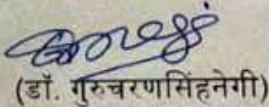 (डॉ. गुरुचरणसिंहनेगी)